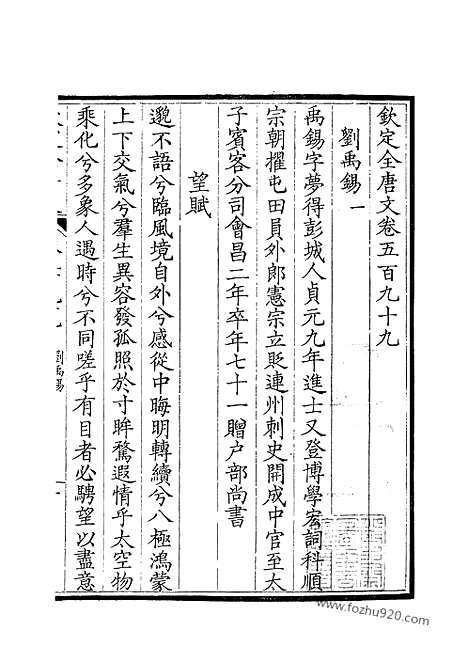 欽定全唐文卷五百九十九
劉禹錫一
禹錫字夢得彭城人貞元九年進士又登博學宏詞科順
宗朝擢屯田員外郎憲宗立貶連州刺史開成中官至太
子賓客分司會昌二年卒年七十一贈户部尚書
望賦
邈不語兮臨風境自外兮感從中晦明轉續兮八極鴻蒙
上下交氣兮羣生異容發孤照於寸眸騖遐情乎太空物
乘化兮多象人遇時兮不同嗟乎有目者必騁望以盡意
劉禹錫
一
www.fozhu920.com